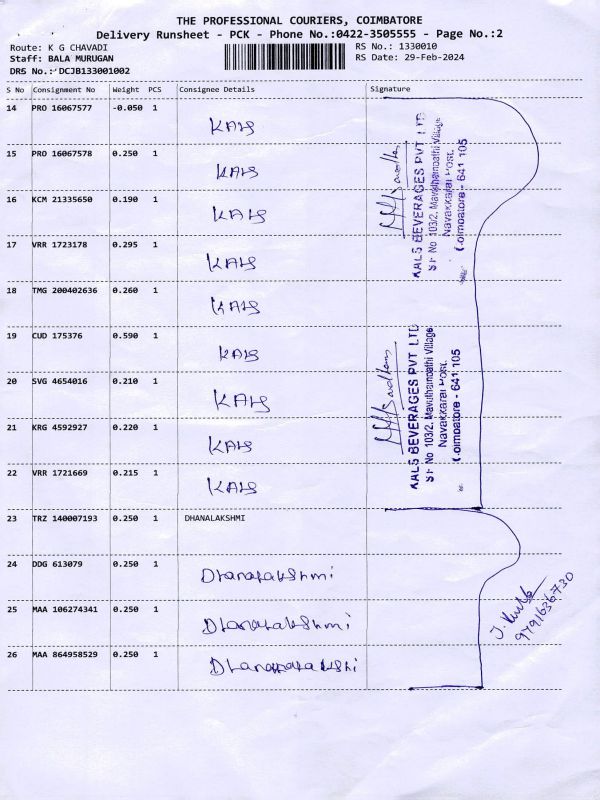 THE PROFESSIONAL COURIERS, COIMBATORE
Delivery Runsheet - PCK - Phone No.:0422-3505555 - Page No.:2
Route: K G CHAVADI
RS No.: 1330010
Staff: BALA MURUGAN
RS Date: 29-Feb-2024
DRS No.: DCJB133001002
S No Consignment No Weight PCS Consignee Details Signature
14 PRO 16067577 -0.050 1
KALS
15 PRO 16067578 0.250 1
KALS
16 KCM 21335650 0.190 1
KALS
17 VRR 1723178 0.295 1
KALS
18 TMG 200402636 0.260 1
KALS
19 CUD 175376 0.590 1
KALS
20 SVG 4654016 0.210 1
KALS
21 KRG 4592927 0.220 1
KALS
22 VRR 1721669 0.215 1
KALS
23 TRZ 140007193 0.250 1 DHANALAKSHMI
24 DDG 613079 0.250 1
Dhanalakshmi
25 MAA 106274341 0.250 1
Dhanalakshmi
26 MAA 864958529 0.250 1
KALS BEVERAGES PVT LTD
SF No 103/2, Mavuthampathi Village
Navakkarai Post,
Coimbatore - 641 105
KALS BEVERAGES PVT LTD
SF No 103/2, Mavuthampathi Village
Navakkarai Post,
Coimbatore - 641 105
9791636730